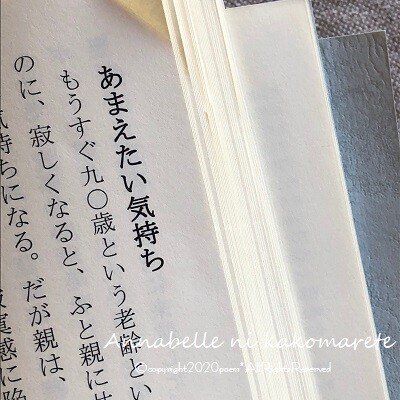 あまえたい気持ち
もうすぐ九〇歳という老齢とい
のに、寂しくなると、ふと親に
気持ちになる。だが親は、
実感に
Annabelle ni kakomarete
©copyright2020poem*AllRightsReserved